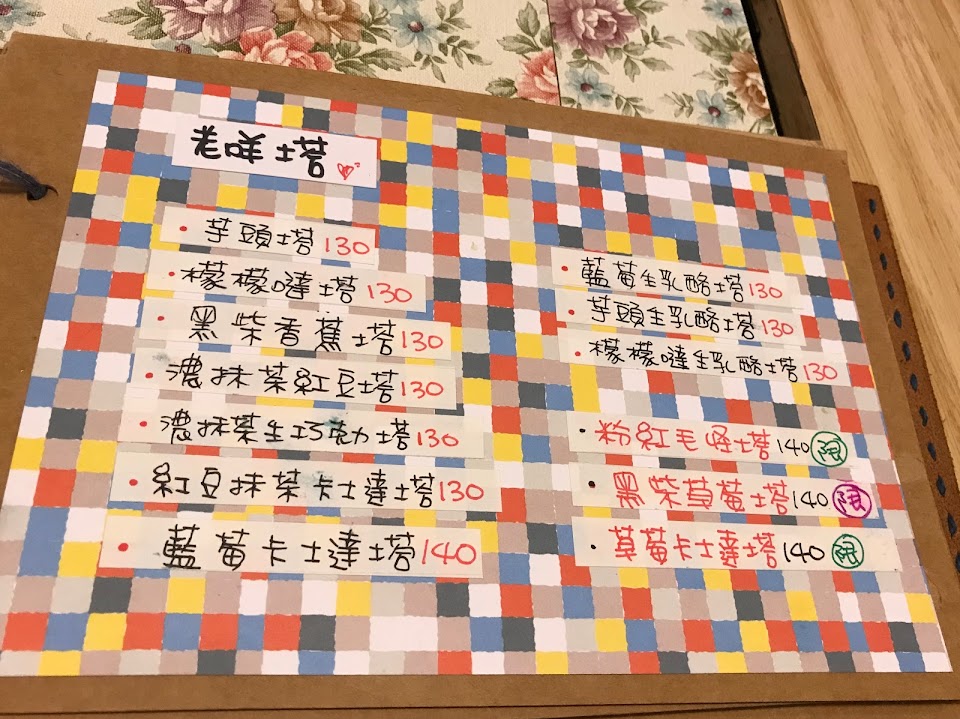 老咩塔
芋頭塔130
檬檬噠塔130
黑柴香蕉塔130
濃抹茶紅豆塔130
濃抹茶生巧克力塔130
紅豆抹茶卡士達塔130
藍莓卡士達塔140
藍莓生乳酪塔130
芋頭生乳酪塔130
檬檬噠生乳酪塔130
粉紅毛怪塔140限
黑柴草莓塔140限
草莓卡士達塔140限